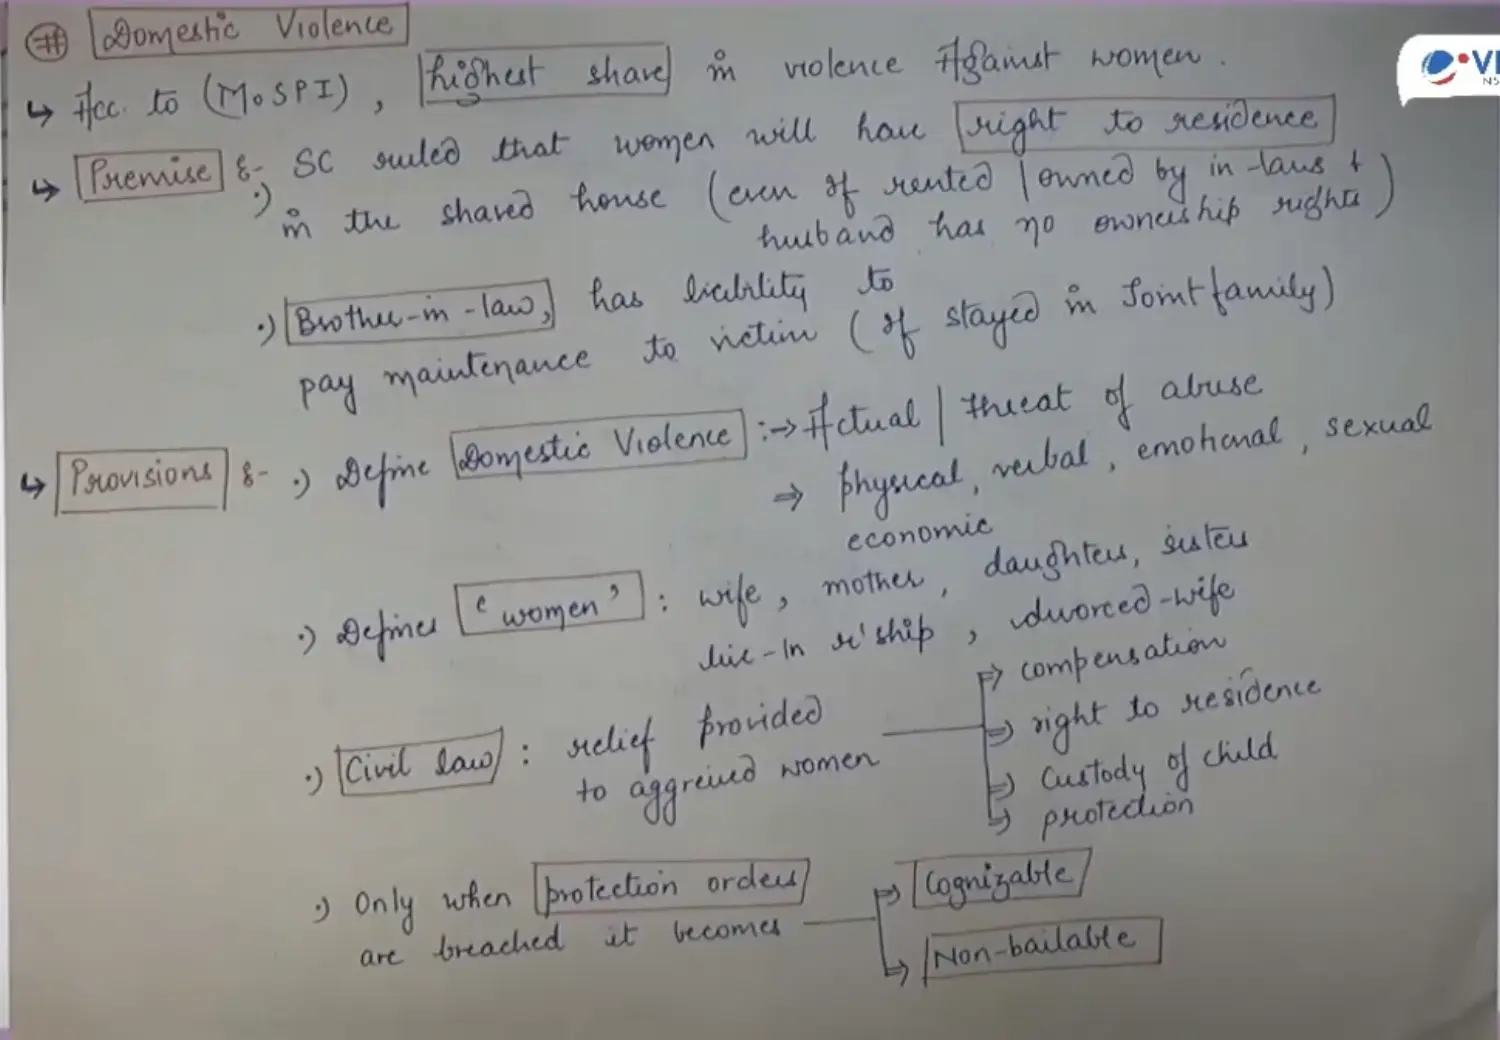 # Domestic Violence
↳ Acc. to (MoSPI), highest share in violence Against women.
↳ Premise :- SC ruled that women will have right to residence
·) in the shared house (even if rented / owned by in-laws &
husband has no ownership rights)
·) Brother-in-law, has liability to
pay maintenance to victim (if stayed in Joint family)
↳ Provisions :- ·) Define Domestic Violence :→ Actual / threat of abuse
⇒ physical, verbal, emotional, sexual
economic
·) Defines 'women' : wife, mother, daughters, sisters
live-In r'ship, divorced-wife
·) Civil law : relief provided
to aggreived women
→ compensation
→ right to residence
→ Custody of child
→ protection
·) Only when protection orders
are breached it becomes
→ Cognizable
→ Non-bailable
VI
NS